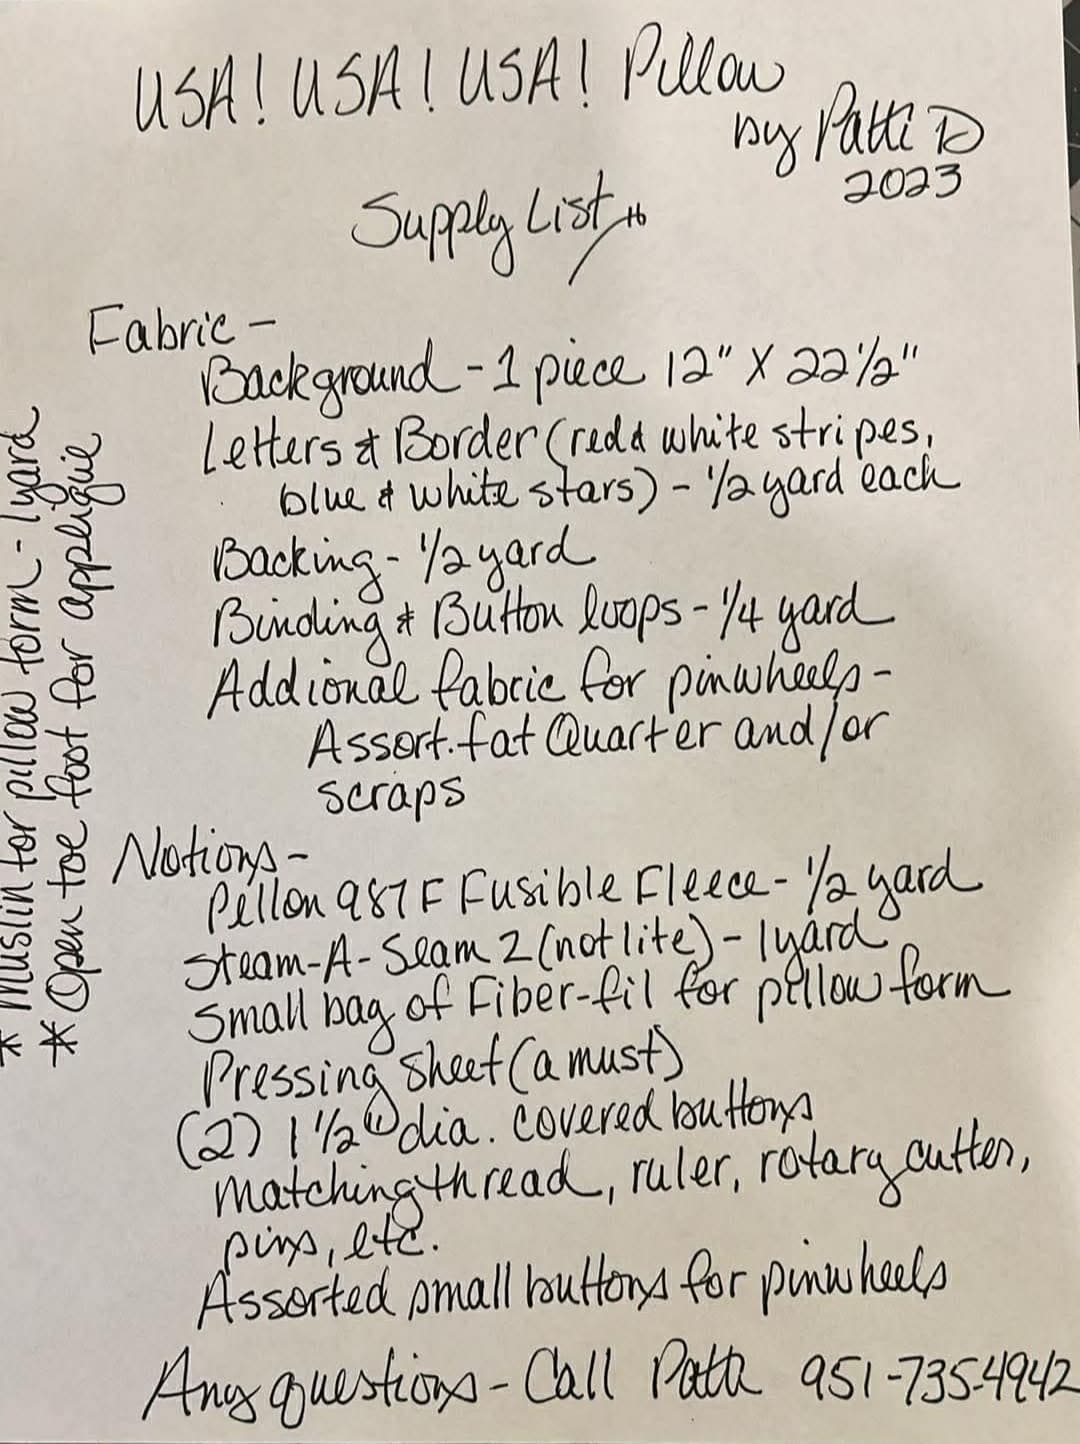 USA! USA! USA! Pillow
by Patti D
2023
Supply List
Fabric -
Background - 1 piece 12" X 22½"
Letters & Border (red & white stripes,
blue & white stars) - ½ yard each
Backing - ½ yard
Binding & Button loops - ¼ yard
Addional fabric for pinwheels -
Assort. fat Quarter and/or
scraps
Notions -
Pellon 987F Fusible Fleece - ½ yard
Steam-A-Seam 2 (not lite) - 1 yard
Small bag of Fiber-fil for pillow form
Pressing Sheet (a must)
(2) 1½" dia. covered buttons
Matching thread, ruler, rotary cutter,
pins, etc.
Assorted small buttons for pinwheels
Any questions - Call Patti 951-735-4942
* Muslin for pillow form - 1 yard
* Open toe foot for applique